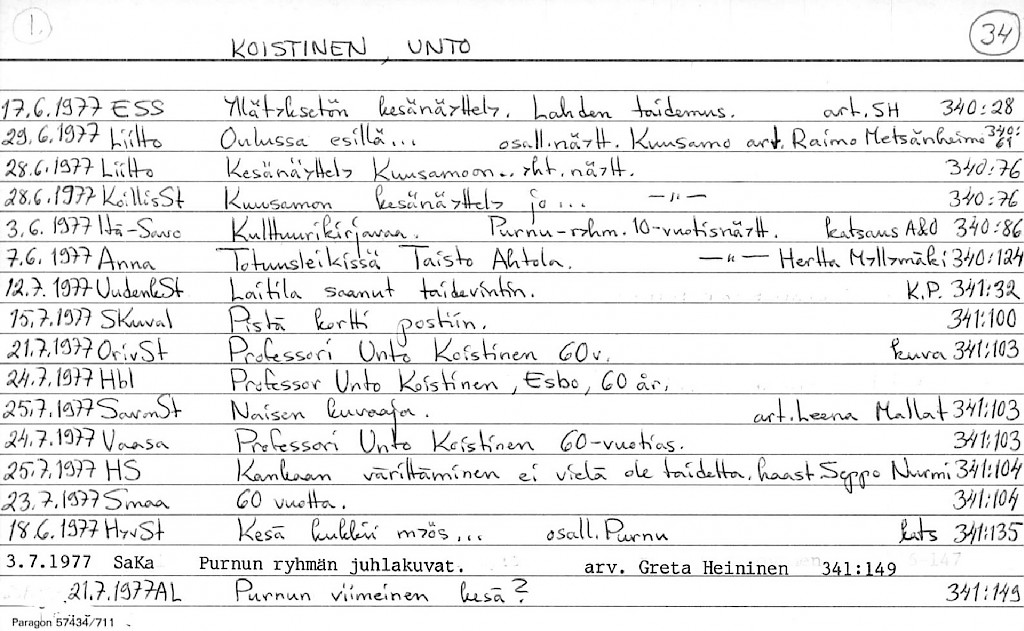 1.
34
KOISTINEN, UNTO
17.6.1977 ESS Yllätyksetön kesänäyttely. Lahden taidemus. art. SH 340:28
29.6.1977 Liitto Oulussa esillä... osall.näytt. Kuusamo art. Raimo Metsänheimo 340:61
28.6.1977 Liitto Kesänäyttely Kuusamoon.. yht. näytt. 340:76
28.6.1977 KoillisSt Kuusamon kesänäyttely jo... —"— 340:76
3.6.1977 Itä-Savo Kulttuurikirjavaa. Purnu-ryhm. 10-vuotisnäytt. katsaus A&O 340:86
7.6.1977 Anna Totuusleikissä Taisto Ahtola. —"— Hertta Myllymäki 340:124
12.7.1977 UudenkSt Laitila saanut taidevintin. K.P. 341:32
15.7.1977 SKuval Pistä kortti postiin. 341:100
21.7.1977 OrivSt Professori Unto Koistinen 60v. kuva 341:103
24.7.1977 Hbl Professor Unto Koistinen, Esbo, 60 år.
25.7.1977 SavonSt Naisen kuvaaja. art. Leena Mallat 341:103
24.7.1977 Vaasa Professori Unto Koistinen 60-vuotias. 341:103
25.7.1977 HS Kankaan värittäminen ei vielä ole taidetta. haast. Seppo Nurmi 341:104
23.7.1977 Smaa 60 vuotta. 341:104
18.6.1977 HyvSt Kesä kukkii myös... osall. Purnu kats 341:135
3.7.1977 SaKa Purnun ryhmän juhlakuvat. arv. Greta Heininen 341:149
21.7.1977 AL Purnun viimeinen kesä? 341:149
Paragon 57434/711